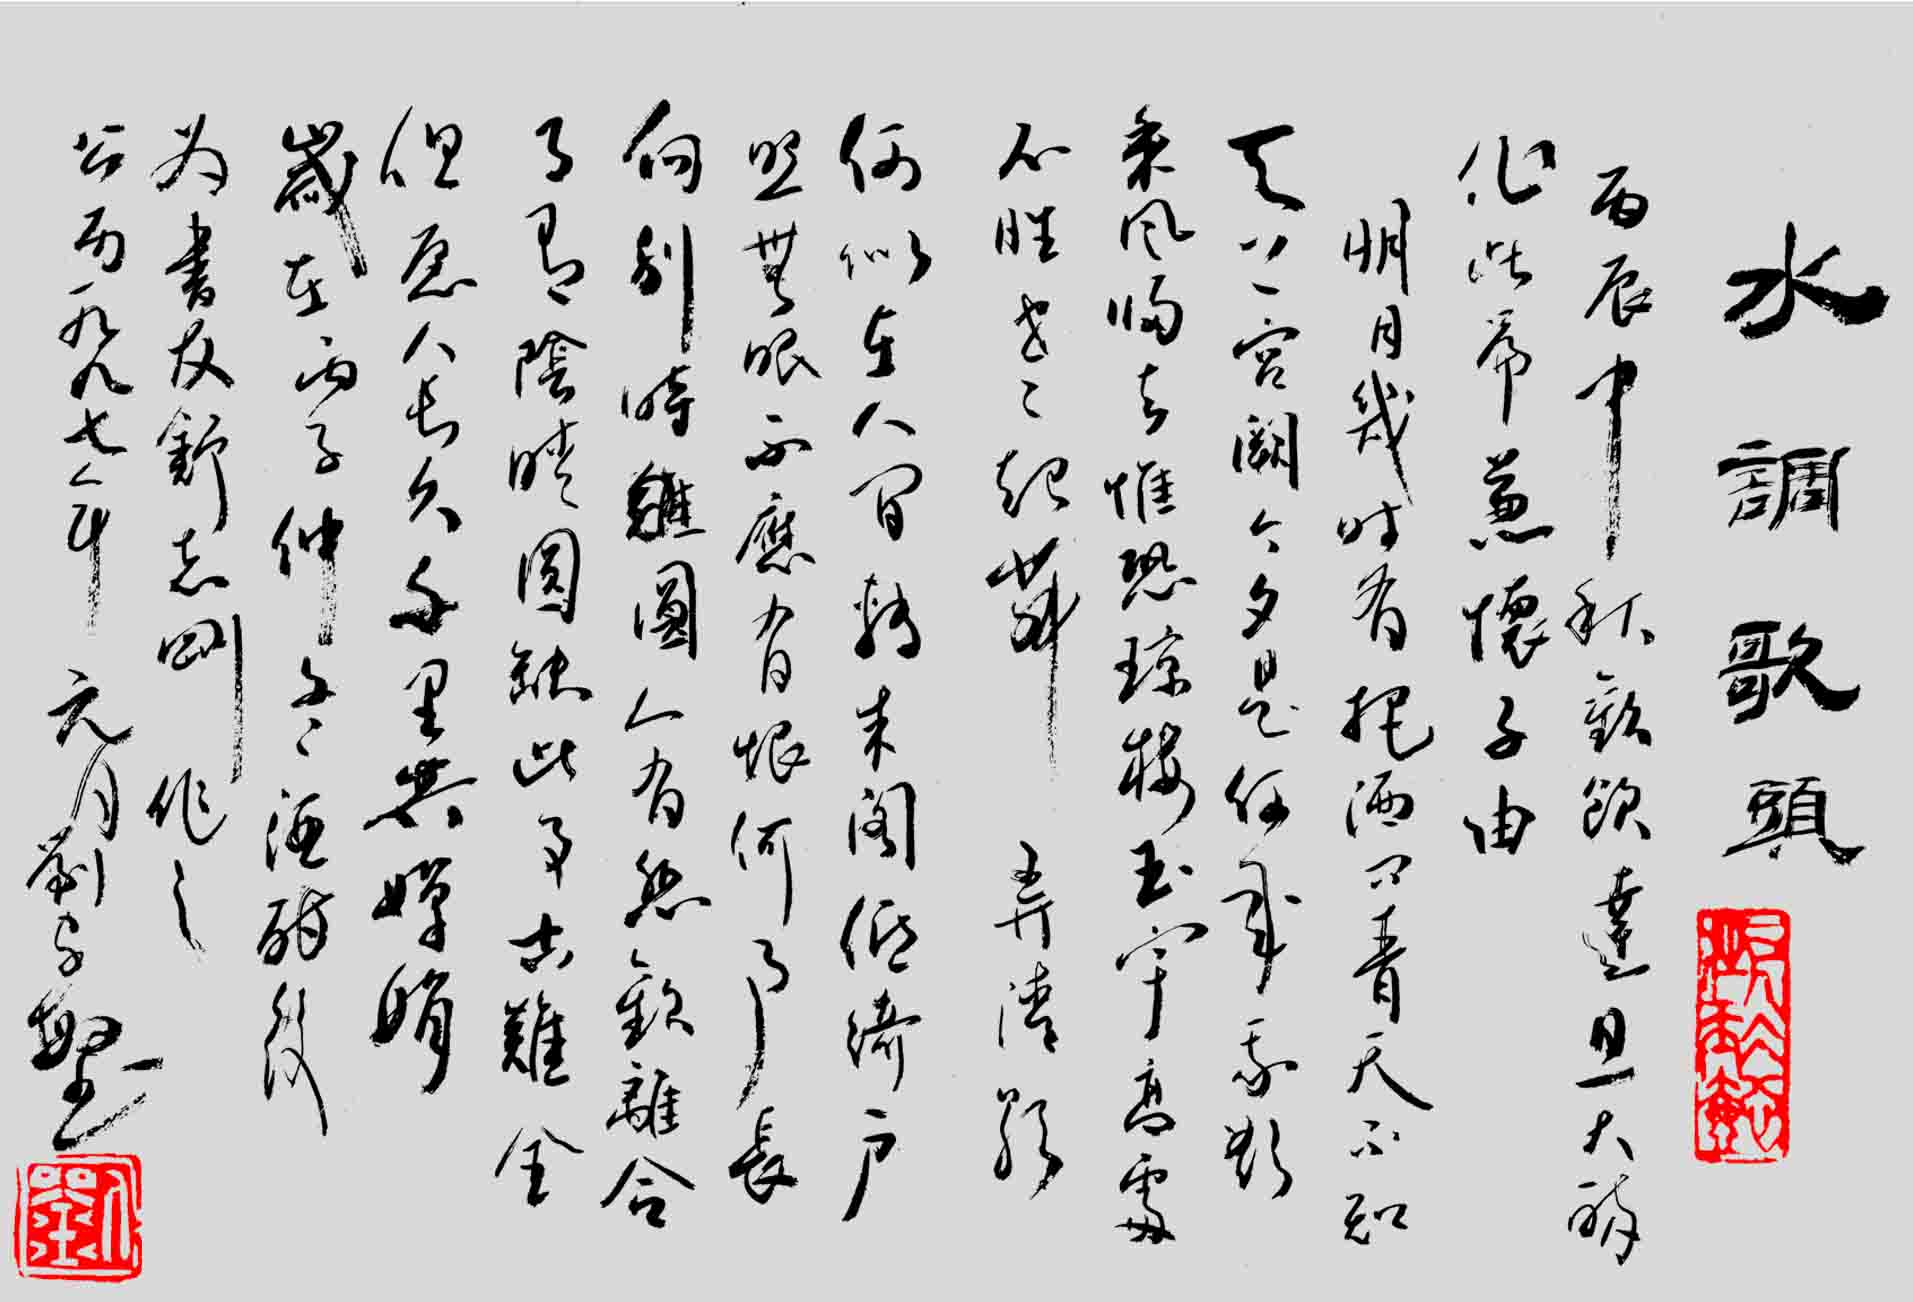 水調歌頭
丙辰中秋歡飲達旦大醉
作此篇兼懷子由
明月幾时有把酒问青天不知
天上宫闕今夕是何年我欲
乘风歸去惟恐瓊樓玉宇高處
不胜寒起舞弄清影
何似在人间轉朱阁低綺户
照無眠不應有恨何事長
向别時圓人有悲歡離合
月有陰晴圆缺此事古難全
但愿人长久千里共嬋娟
歲在丙子仲冬酒酣後
为書友舒志刚作之
公一九九七年元月劉子